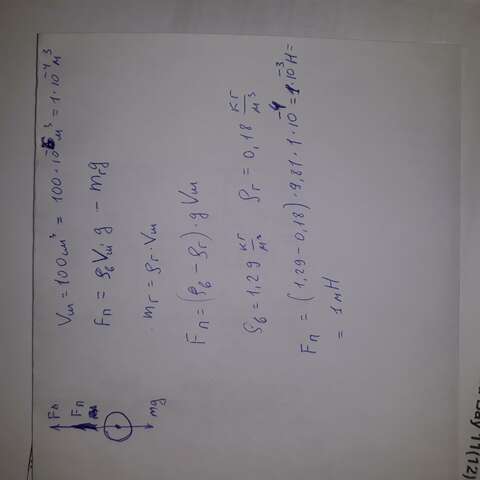 Vш = 100 см³ = 100 · 10⁻⁶ м³ = 1 · 10⁻⁴ м³
Fп = ρв Vш g − mг g
mг = ρг · Vш
Fп = (ρв − ρг) · g Vш
ρв = 1,29 кг/м³ ρг = 0,18 кг/м³
Fп = (1,29 − 0,18) · 9,81 · 1 · 10⁻⁴ = 1 · 10⁻³ Н =
= 1 мН
Fп
Fп
mg